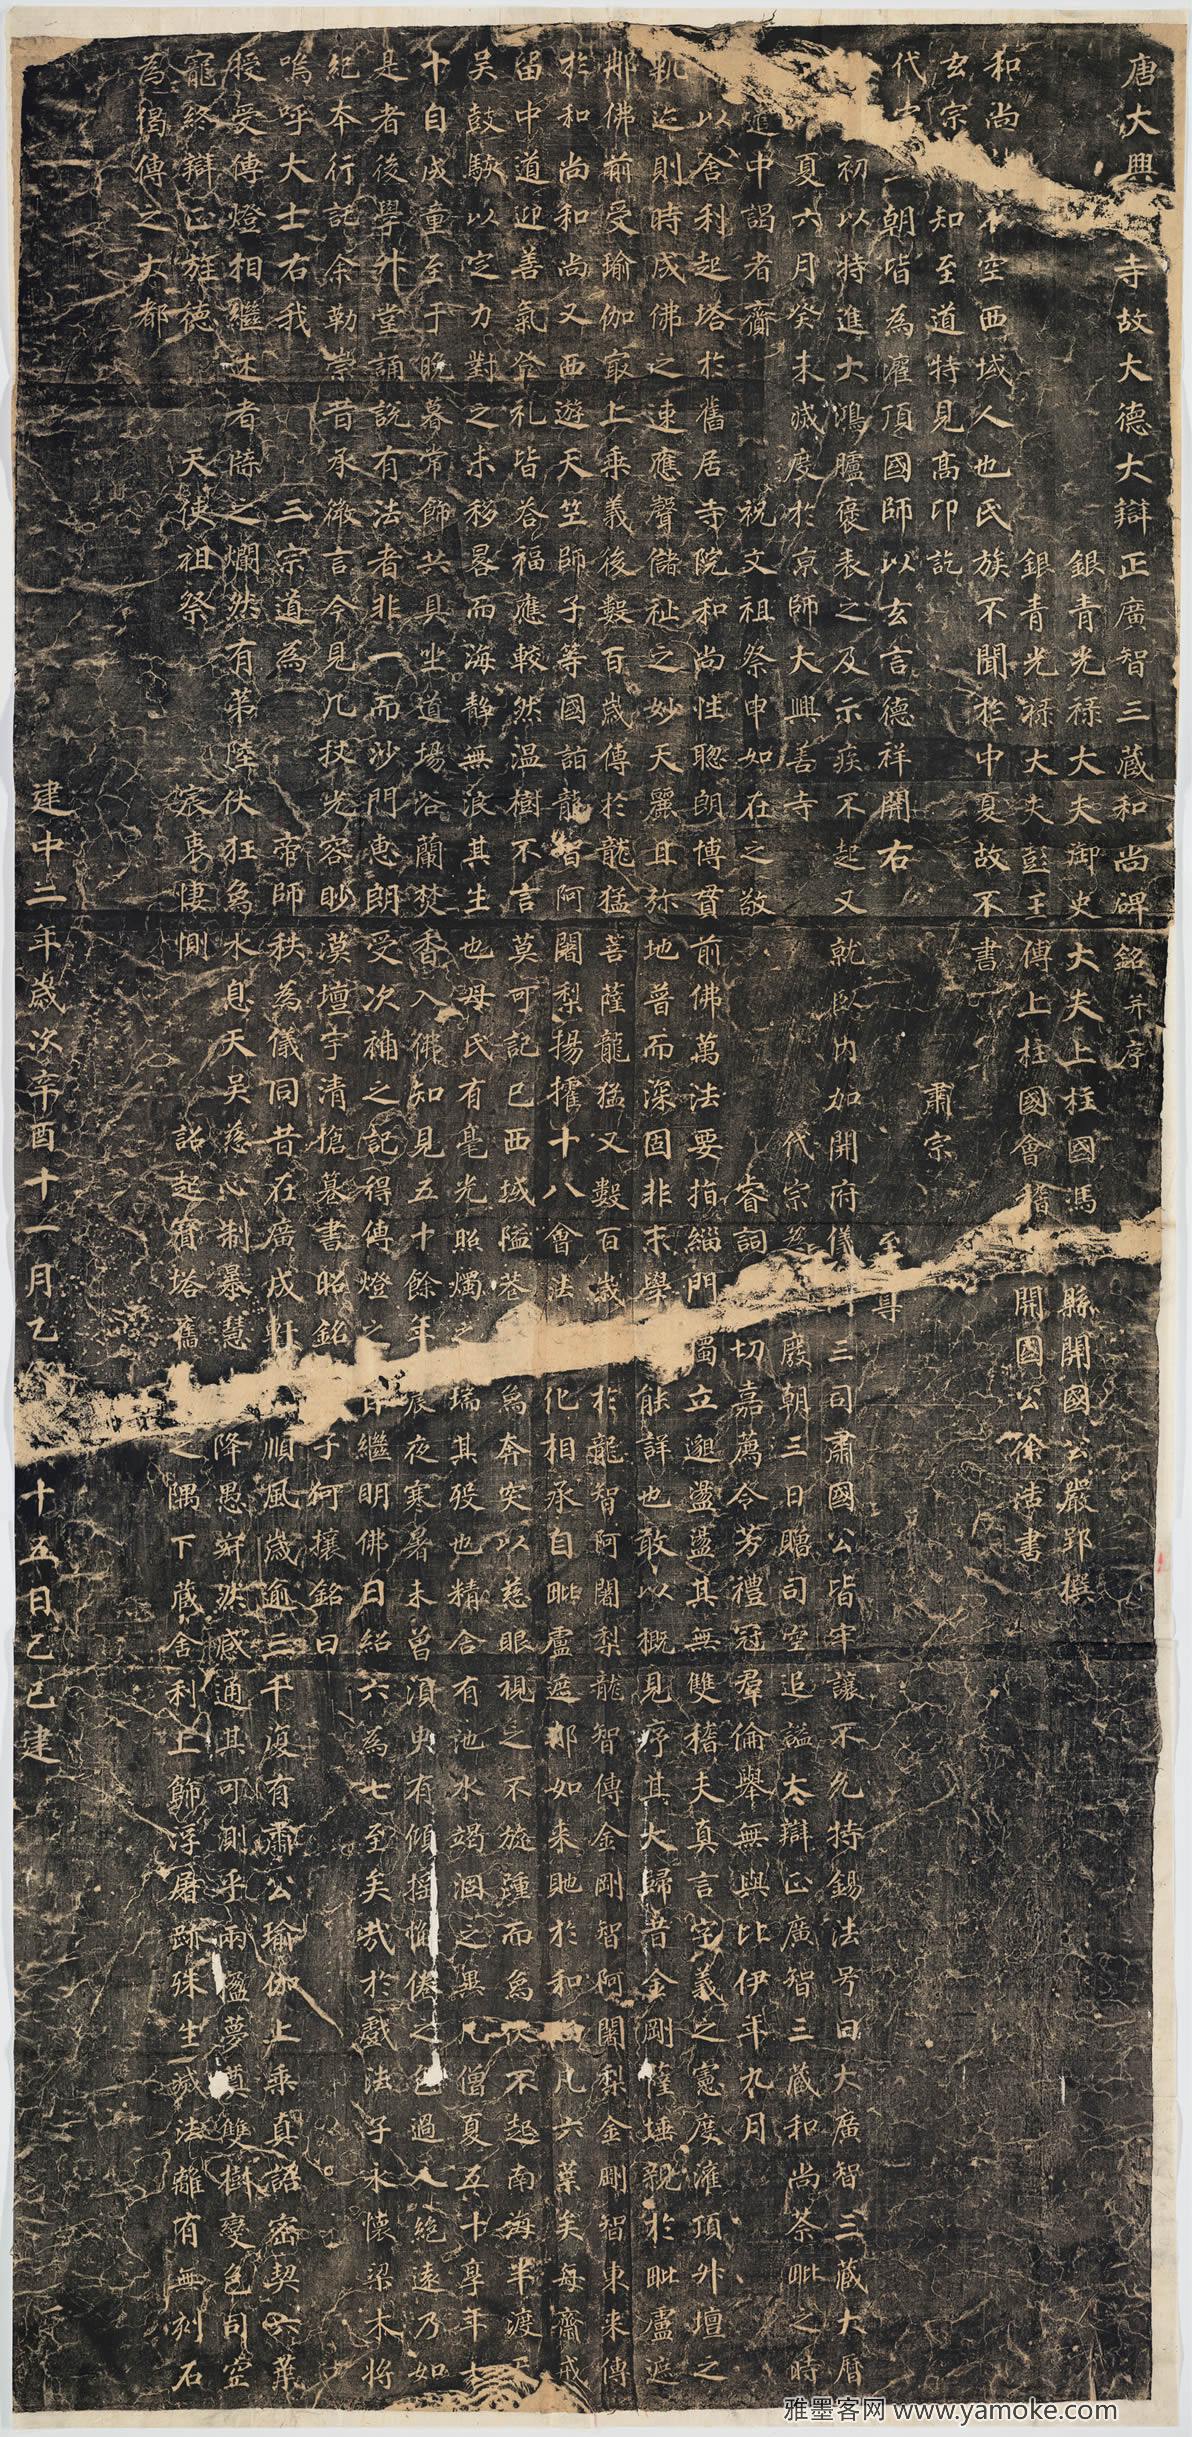 唐大興 寺故大德大辯正廣智三藏和尚碑銘并序
銀青光禄大夫御史大夫上柱國馮 縣開國公嚴郢撰
銀青光禄大夫彭王傅上柱國會稽 開國公徐浩書
和尚 不空西域人也氏族不聞於中夏故不書
玄宗 知至道特見高仰訖 肅宗
代宗 朝皆為灌頂國師以玄言德祥開右 至尊
初以特進大鴻臚褒表之及示疾不起又就卧内加開府儀 三司肅國公皆牢讓不允特錫法号曰大廣智三藏大曆
夏六月癸未滅度於京師大興善寺 代宗為 廢朝三日贈司空追謚大辯正廣智三藏和尚荼毗之時
遣中謁者齎 祝文祖祭申如在之敬 睿詞 切嘉薦令芳禮冠羣倫舉無與比伊年九月
以舍利起塔於舊居寺院和尚性聰朗博貫前佛萬法要指緇門 獨立邈盪盪其無雙稽夫真言字義之憲度灌頂升壇之
軌迹則時成佛之速應聲儲祉之妙天麗且弥地普而深固非末學 能詳也敢以概見序其大歸昔金剛薩埵親於毗盧遮
那佛前受瑜伽㝡上乘義後數百歲傳於龍猛菩薩龍猛又數百歲 於龍智阿闍梨龍智傳金剛智阿闍梨金剛智東来傳
於和尚和尚又西遊天竺師子等國詣龍智阿闍梨揚搉十八會法 化相承自毗盧遮那如来貤於和 凡六葉矣每齋戒
留中道迎善氣登礼皆荅福應較然温樹不言莫可記已西域隘巷 為奔突以慈眼視之不旋踵而 為伏不起南海半渡天
吴鼓駭以定力對之未移晷而海静無浪其生也母氏有毫光照燭之 瑞其殁也精舍有池水竭涸之異凡僧夏五十享年七
十自成童至于晚暮常飾共具坐道場浴蘭焚香入佛知見五十餘年 晨夜寒暑未曾湏㬰有傾摇懈倦之色過人絶遠乃如
是者後學升堂誦說有法者非一而沙門恵朗受次補之記得傳燈之 繼明佛日紹六為七至矣哉於戲法子永懷梁木將
紀本行託余勒崇昔承微言今見几杖光容眇漠壇宇清愴墓書昭銘 子何攘銘曰
嗚呼大士右我 三宗道為 帝師秩為儀同昔在廣成軒 順風歲逾三千復有肅公瑜伽上乘真語密契六葉
授受傳燈相繼述者牒之爛然有第陸伏狂象水息天吴慈心制暴慧 降愚寂然感通其可測乎兩楹夢奠雙樹變色司空
寵終辯正旌德 天使祖祭 宸衷悽惻 詔起寶塔舊 之隅下藏舍利上飾浮屠跡殊生滅法離有無刻石
為偈傳之大都
建中二年歲次辛酉十一月乙 十五日己巳建
雅墨客网 www.yamoke.com